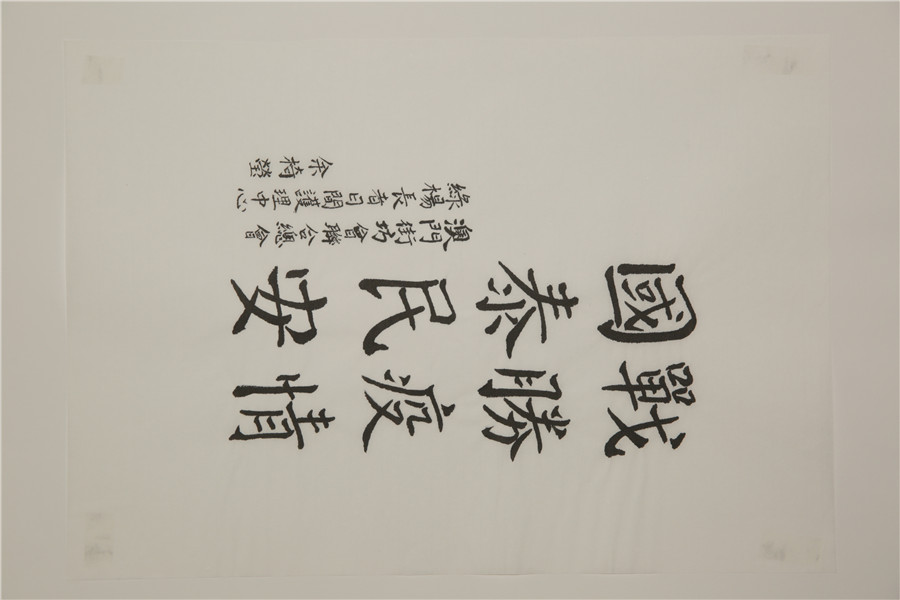 戰勝疫情
國泰民安
澳門街坊會聯合總會
綠楊長者日間護理中心
余椅瑩